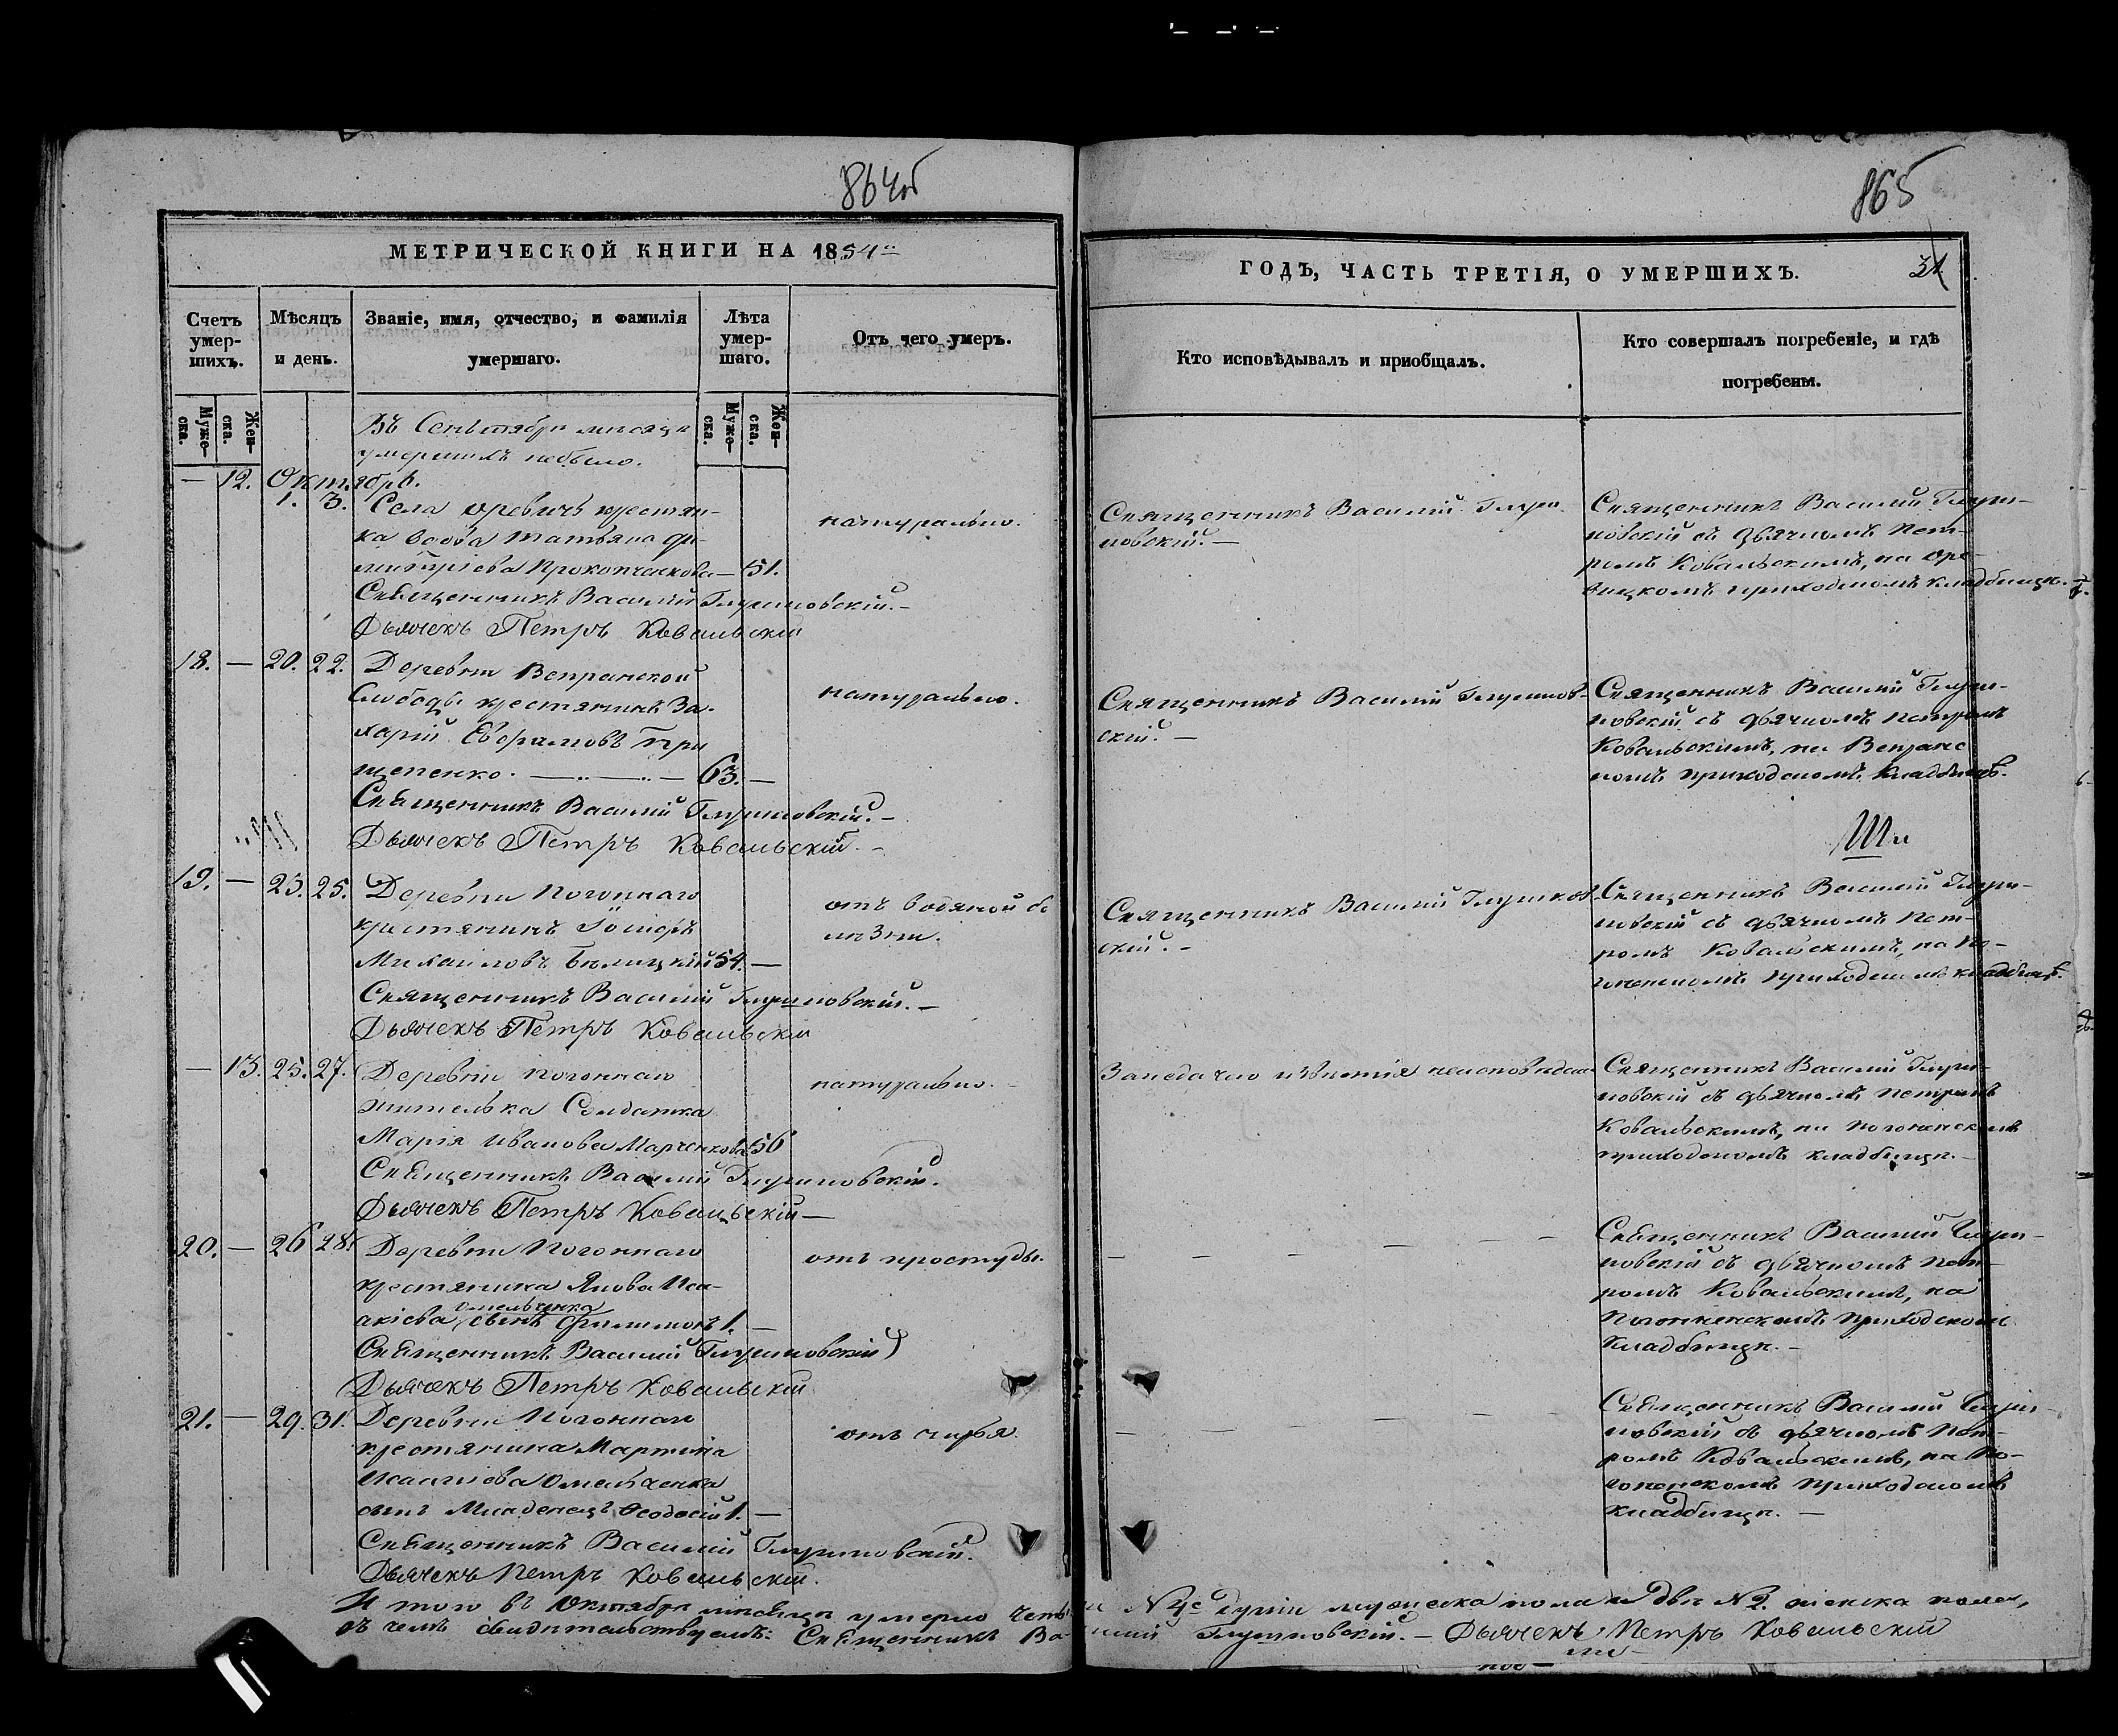 864об
МЕТРИЧЕСКОЙ КНИГИ НА 1854
Счетъ умер-шихъ.
Мѣсяцъ и день.
Званіе, имя, отчество, и фамилія умершаго.
Лѣта умер-шаго.
Отъ чего умеръ.
Муже-ска.
Жен-ска.
Муже-ска.
Жен-ска.
Въ Сентябрѣ мѣсяцѣ
умершихъ небыло.
— 12. Октябрь.
1. 3. Села Оревичъ крестян-
ка вдова Татьяна Ди-
митріева Прокопченкова — 51.
натурально.
Священникъ Василій Глушковскій. —
Дьячекъ Петръ Ковальскій
18. — 20. 22. Деревни Вепринской
Слободы крестянинъ За-
харій Ефрамовъ При
щепенко. — 63. —
натурально.
Священникъ Василій Глушковскій. —
Дьячекъ Петръ Ковальскій. —
19. — 23. 25. Деревни Погоннаго
крестянинъ
Михаиловъ Бѣлицкій 54. —
отъ водяной бо
лѣзни.
Священникъ Василій Глушковскій. —
Дьячекъ Петръ Ковальскій
— 13. 25. 27. Деревни Погоннаго
жителька Солдатка
Марія Иванова Марченкова 56
натурально. —
Священникъ Василій Глушковскій.
Дьячекъ Петръ Ковальскій —
20. — 26 28. Деревни Погоннаго
крестянина Якова Иса-
акіева Омельченка сынъ Филимонъ 1. —
отъ простуды.
Священникъ Василій Глушковскій
Дьячекъ Петръ Ковальскій
21. — 29. 31. Деревни Погоннаго
крестянина Мартина
Исаакіева Омельченка
сынъ Младенецъ Ѳеодосій 1. —
отъ чирья.
Священникъ Василій Глушковскій.
Дьячекъ Петръ Ковальскій.
865
ГОДЪ, ЧАСТЬ ТРЕТІЯ, О УМЕРШИХЪ.
31
Кто исповѣдывалъ и пріобщалъ.
Кто совершалъ погребеніе, и гдѣ погребены.
Священникъ Василій Глуш
ковскій. —
Священникъ Василій Глуш-
ковскій съ дьячкомъ Пет-
ромъ Ковальскимъ, на Оре-
вицкомъ приходскомъ кладбищѣ. —
Священникъ Василій Глушков-
скій. —
Священникъ Василій Глуш-
ковскій съ дьячкомъ Петромъ
Ковальскимъ, на Вепринс
комъ приходскомъ кладбищѣ.
Священникъ Василій Глушков
скій. —
Священникъ Василій Глуш-
ковскій съ дьячкомъ Пет-
ромъ Ковальскимъ, на По-
гоненскомъ приходскомъ кладбищѣ.
Занедачею извѣстія неисповѣдана
Священникъ Василій Глуш-
ковскій съ дьячкомъ Петромъ
Ковальскимъ, на Погоненскомъ
приходскомъ кладбищѣ. —
— — — — — —
Священникъ Василій Глуш-
ковскій съ дьячкомъ Пет-
ромъ Ковальскимъ, на
Погоненскомъ приходскомъ
кладбищѣ. —
— — — — —
Священникъ Василій Глуш-
ковскій съ дьячкомъ Пет-
ромъ Ковальскимъ, на По-
гоненскомъ приходскомъ
кладбищѣ. —
И того въ Октябрѣ мѣсяцѣ умерло четы ре № 4. души мужеска пола и двѣ № 2. женска пола,
въ чемъ свидѣтельствуемъ: Священникъ Василій Глушковскій. — Дьячекъ Петръ Ковальскій